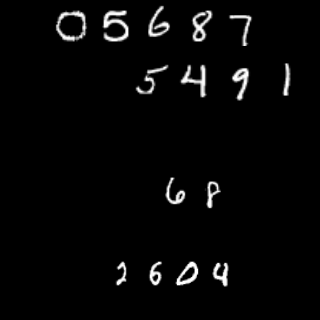 05687
5491
68
2604